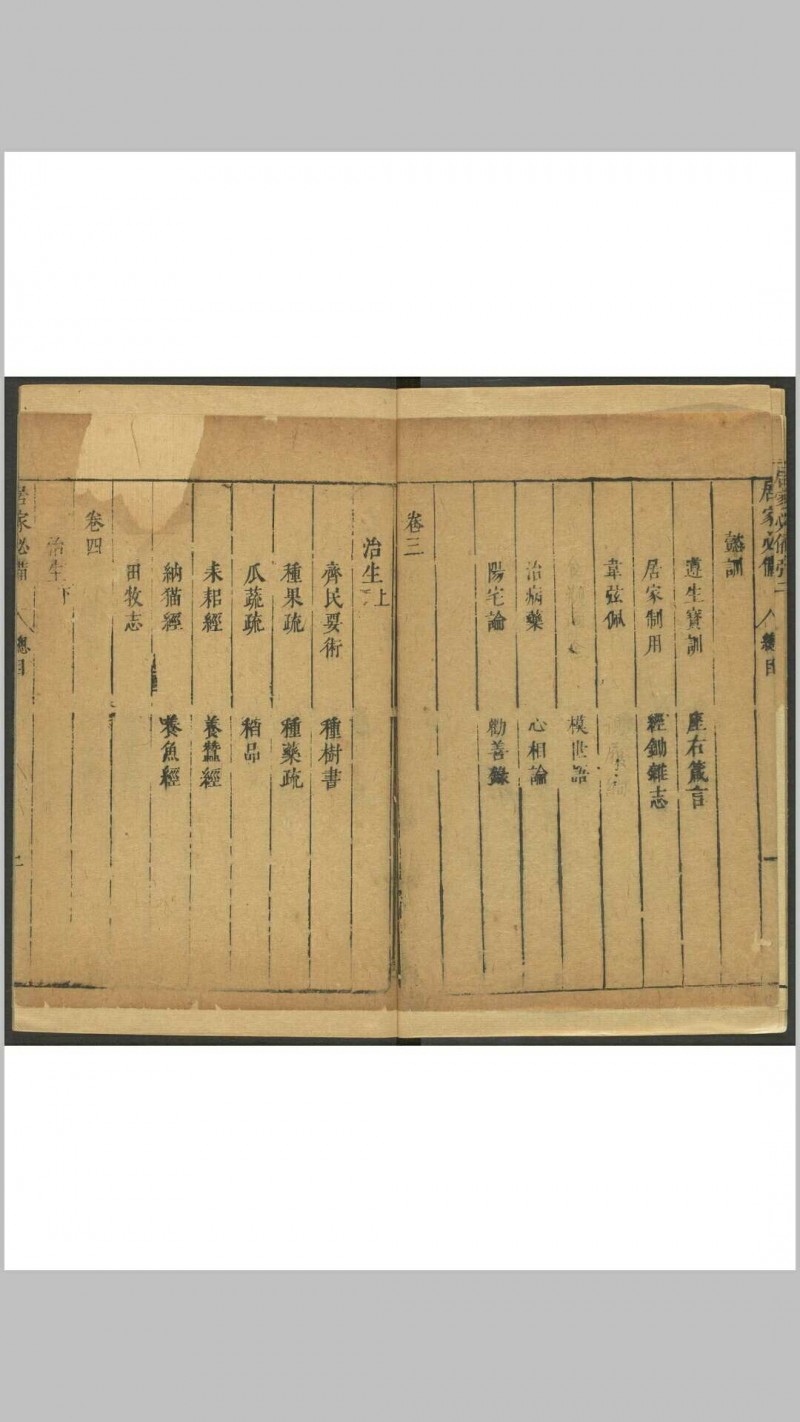 居家必備
總目
懿訓
遵生寶訓 座右箴言
居家制用 經鋤雜志
韋弦佩
模世語
治病藥 心相論
陽宅論 勸善錄
卷三
治生上
齊民要術 種樹書
種果疏 種藥疏
瓜蔬疏 稻品
耒耜經 養蠶經
納猫經 養魚經
田牧志
卷四
治生下
居家必備
總目